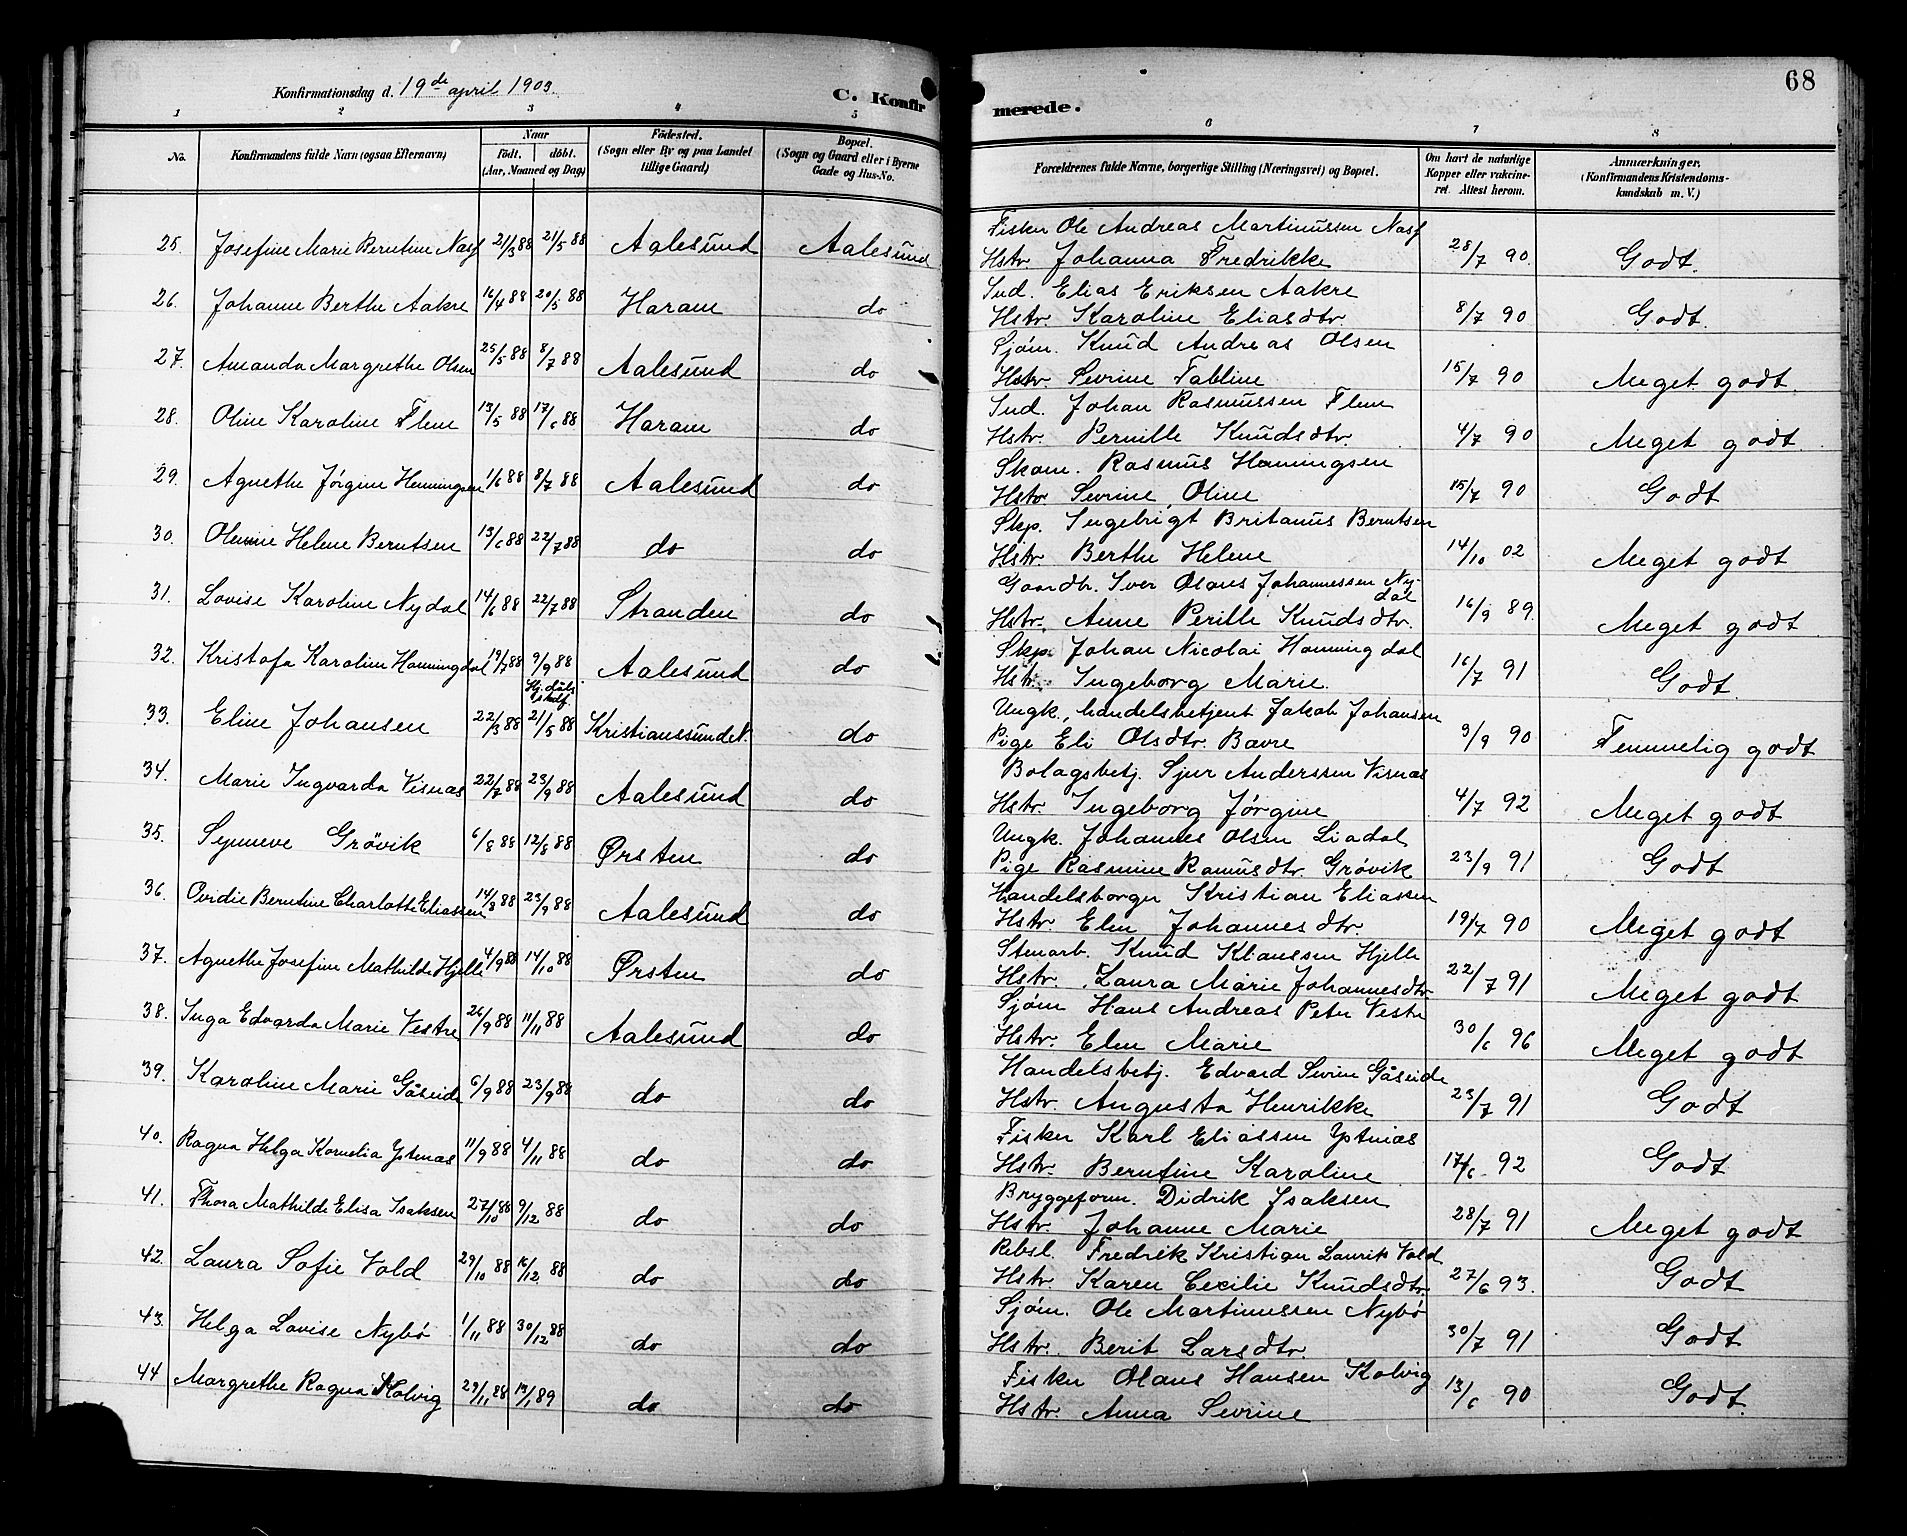 68
Konfirmationsdag d. 19de april 1903.
C. Konfirmerede.
1 2 3 4 5 6 7 8
No.
Konfirmandens fulde Navn (ogsaa Efternavn)
Naar
født. døbt.
(Aar, Maaned og Dag)
Fødested.
(Sogn eller By og paa Landet
tillige Gaard)
Bopæl.
(Sogn og Gaard eller i Byerne
Gade og Hus-No.
Forældrenes fulde Navne, borgerlige Stilling (Næringsvei) og Bopæl.
Om havt de naturlige
Kopper eller vakcine-
ret. Attest herom.
Anmærkninger.
(Konfirmandens Kristendoms-
kundskab m. V.)
Fisker Ole Andreas Martinussen Nasf
25. Josefine Marie Berntine Nasf 21/3 88 21/5 88 Aalesund Aalesund Hstr. Johanna Fredrikke 28/7 90. Godt.
Ind. Elias Eriksen Aakre
26. Johanne Berthe Aakre 16/4 88 20/5 88 Haram do Hstr. Karoline Eliasdtr 8/7 90 Godt.
Sjøm. Knud Andreas Olsen
27. Amanda Margrethe Olsen 25/5 88 8/7 88 Aalesund do Hstr Sevrine Tabline 15/7 90 Meget godt.
Ind. Johan Rasmussen Flem
28. Oline Karoline Flem 13/5 88 17/6 88 Haram do Hstr. Pernille Knudsdtr. 4/7 90 Meget godt.
Skom. Rasmus Henningsen
29. Agnethe Jørgine Henningsen 1/6 88 8/7 88 Aalesund do Hstr Sevrine Oline 15/7 90 Godt
Skp. Ingebrigt Britanus Berntsen
30. Helene Berntsen 13/6 88 22/7 88 do do Hstr. Berthe Helene 14/10 02 Meget godt
Gaardbr. Iver Olaus Johannessen Ny-
dal
31. Lovise Karoline Nydal 14/6 88 22/7 88 Stranden do Hstr. Anne Perille Knudsdtr. 16/9 89. Meget godt
Skp. Johan Nicolai Honningdal
32. Kristofa Karoline Honningdal 19/7 88 9/9 88 Aalesund do Hstr. Ingeborg Marie. 16/7 91 Godt.
Hj.døbt
Ungk., handelsbetjent Jakob Johansen
33. Eline Johansen 22/3 88 21/5 88 Kristianssund N. do Pige Eli Olsdtr. Bavre 3/9 90 Temmelig godt
Bolagsbetj. Sjur Anderssen Visnæs
34. Marie Ingvarda Visnæs 22/7 88 23/9 88 Aalesund do Hstr. Ingeborg Jørgine 4/7 92 Meget godt
Ungk. Johannes Olsen Liadal
35. Synneve Grøvik 6/8 88 12/8 88 Ørsten do Pige Rasmine Ramusdtr. Grøvik 23/9 91 Godt
Handelsborger Kristian Eliassen
36. Ovidie Berntine Charlotte Eliassen 14/8 88 23/9 88 Aalesund do Hstr. Elen Johannesdtr. 19/7 90 Meget godt
Stenarb. Knud Klaussen Hjelle
37. Agnethe Josefine Mathilde Hjelle 4/9 88 14/10 88 Ørsten do Hstr. Laura Marie Johannesdtr 22/7 91 Meget godt
Sjøm Hans Andreas Peter Vestre
38. Inga Edvarda Marie Vestre 26/9 88 11/11 88 Aalesund do Hstr. Elen Marie 30/6 96 Meget godt
Handelsbetj. Edvard Severin Gåseide
39. Karoline Marie Gåseide 6/9 88 23/9 88 do do Hstr. Augusta Henrikke 23/7 91 Godt
Fisker Karl Eliassen Ytnæs
40. Ragna Helga Kornelia Ytnæs 11/9 88 4/11 88 do do Hstr. Berntine Karoline 17/6 92 Godt
Bryggeform. Didrik Isaksen
41. Thora Mathilde Elisa Isaksen 27/10 88 9/12 88 do do Hstr. Johanne Marie 28/7 91 Meget godt
Rebsl. Fredrik Kristian Laurits Vold
42. Laura Sofie Vold 29/10 88 16/12 88 do do Hstr. Karen Cecilie Knudsdtr 27/6 93. Godt
Sjøm. Ole Martinussen Nybø
43. Helga Lovise Nybø 1/11 88 30/12 88 do do Hstr. Berit Larsdtr. 30/7 91 Godt
Fisker Olaus Hansen Kolvig
44 Margrethe Ragna Kolvig 29/11 88 13/1 89 do do Hstr. Anna Sevrine 13/6 90 Godt.